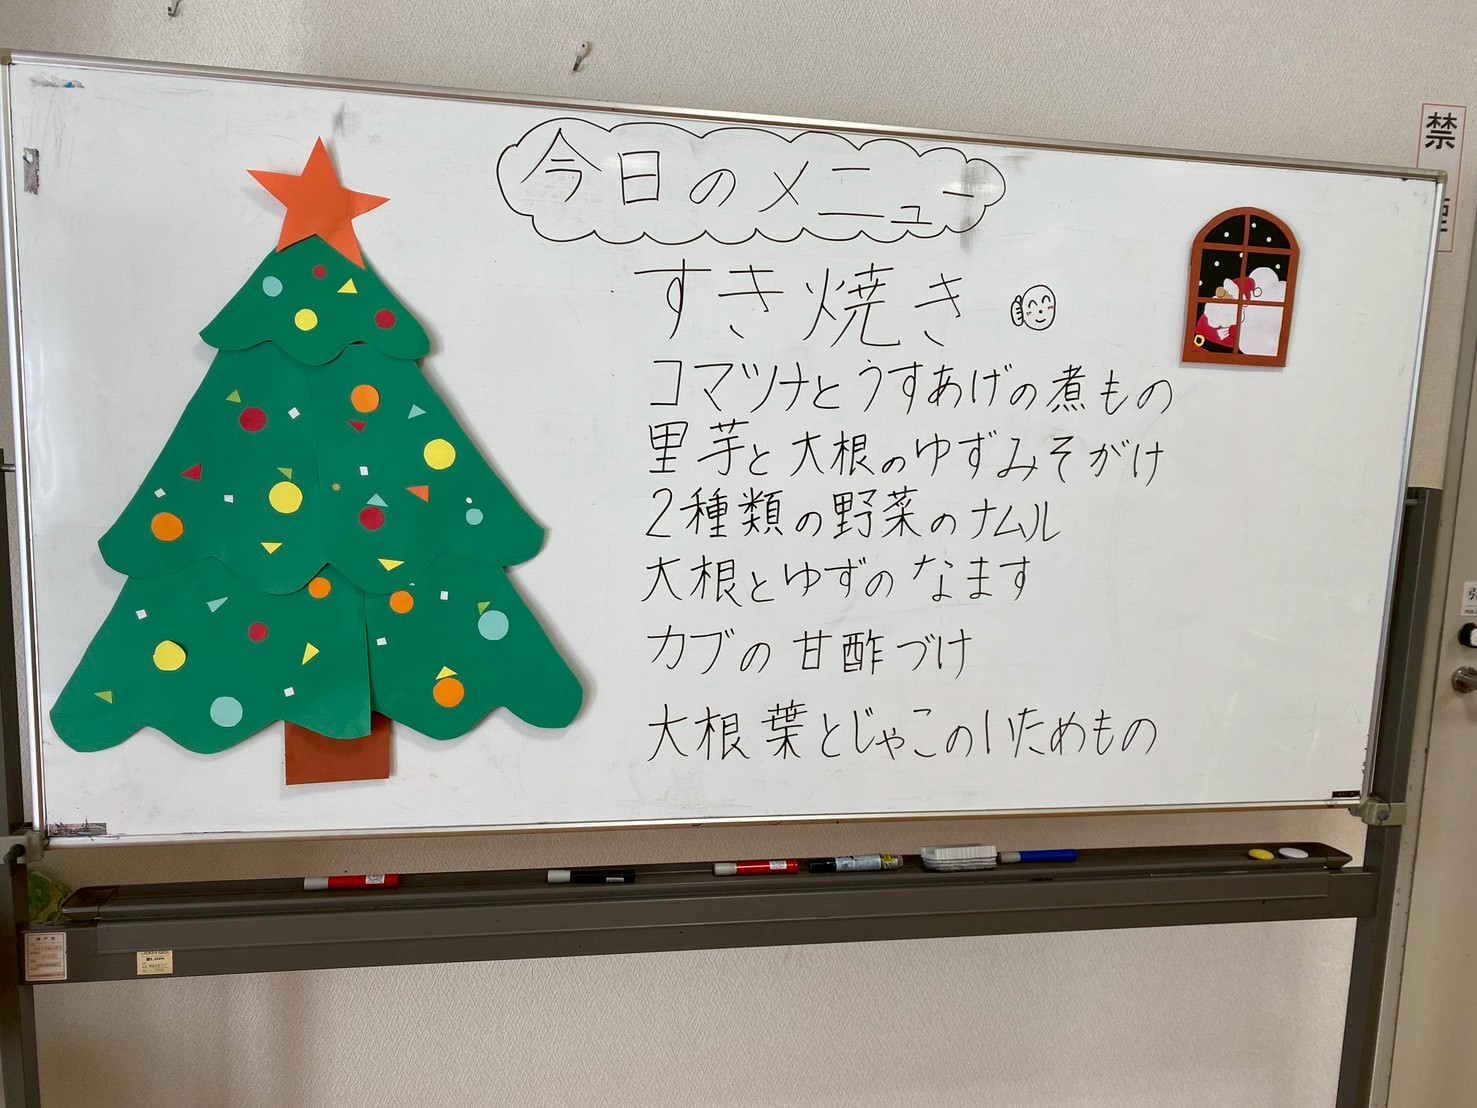 今日のメニュー
すき焼き
コマツナとうすあげの煮もの
里芋と大根のゆずみそがけ
2種類の野菜のナムル
大根とゆずのなます
カブの甘酢づけ
大根葉とじゃこのいためもの
禁